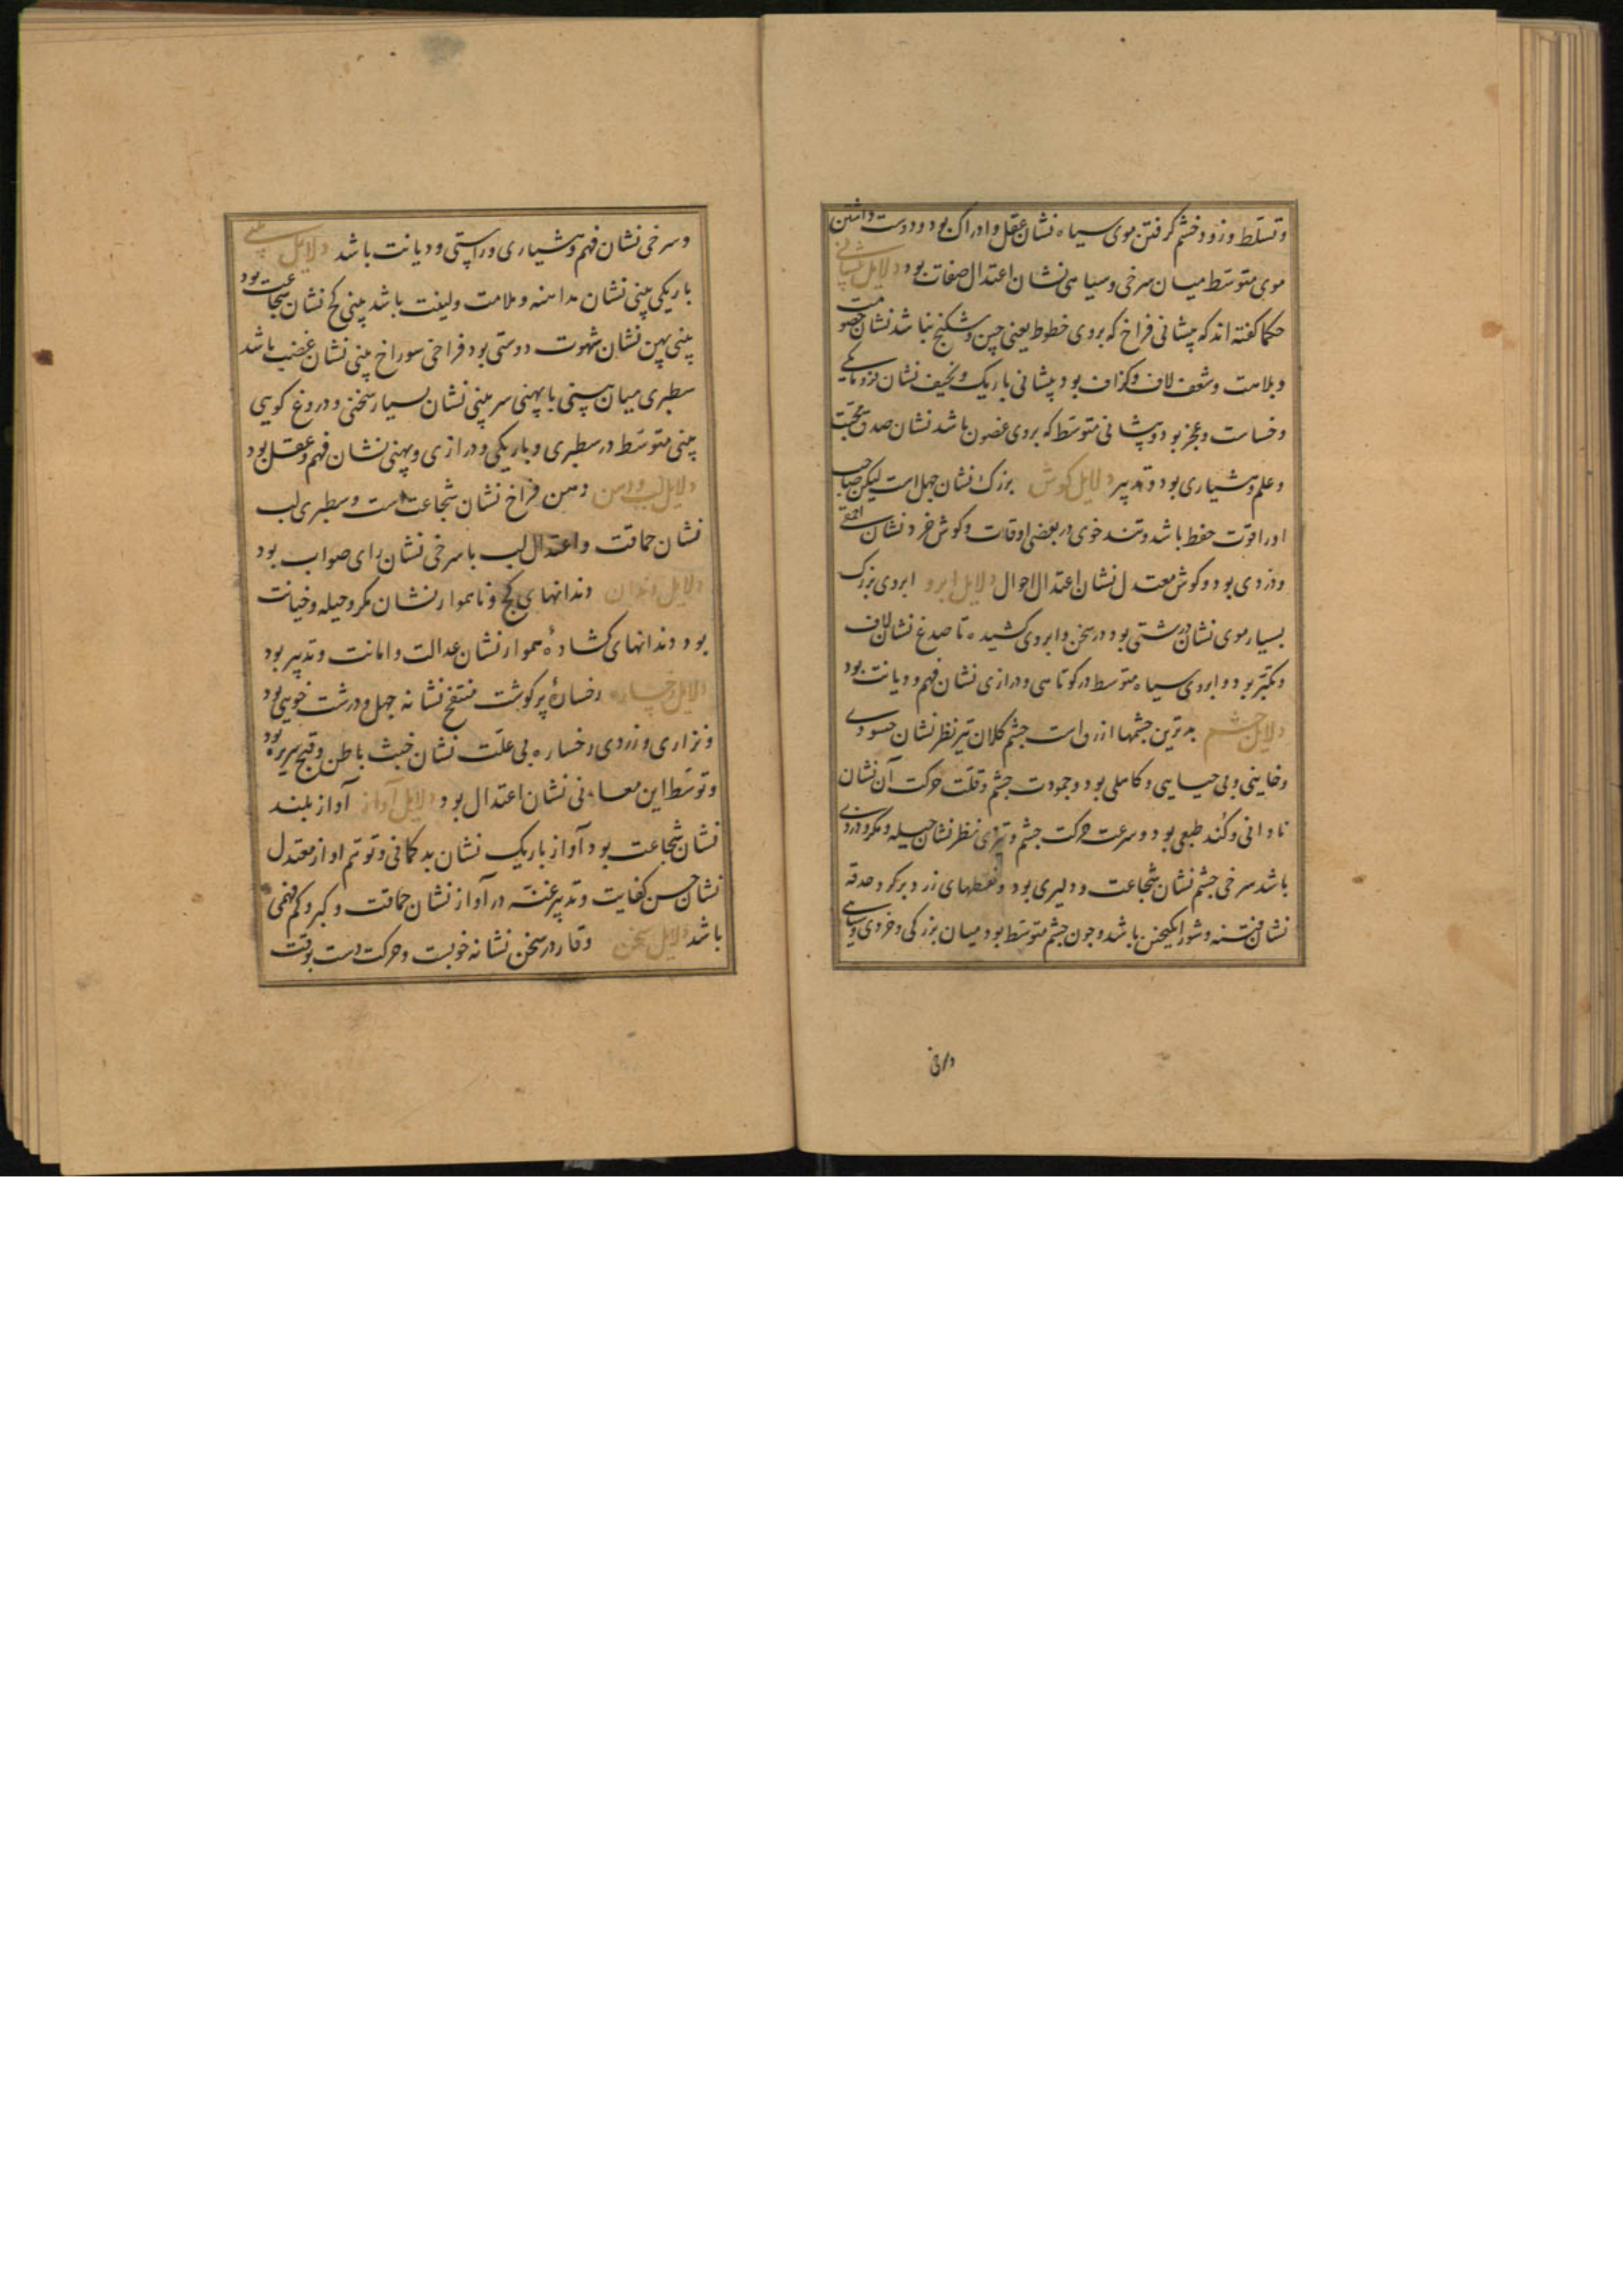 و تسلط و زود خشم گرفتن موی سیاه نشان عقل و ادراک بود و دوست داشتن
موی متوسط میان سرخی و سیاهی نشان اعتدال صفات بود دلایل پیشانی
حکما گفته اند که پیشانی فراخ که بروی خطوط یعنی چین و شکنج نباشد نشان خصومت
و بلامت و شغف لاف و کزاف بود پیشانی باریک و نحیف نشان فرومایکی
و خساست و عجز بود و پیشانی متوسط که بروی غضون باشد نشان صدق محبت
و علم و هشیاری بود و تدبیر دلایل کوش بزرک نشان جهل است لیکن صاحب
او را قوت حفظ باشد و تند خوی در بعضی اوقات و کوش خرد نشان احمقی
و دزدی بود و کوش معتدل نشان اعتدال احوال دلایل ابرو ابروی بزرک
بسیار موی نشان درشتی بود در سخن و ابروی کشیده تا صدغ نشان لاف
و تکبر بود و ابروی سیاه متوسط در کوتاهی و درازی نشان فهم و دیانت بود
دلایل چشم بدترین چشمها ازرق است چشم کلان تیز نظر نشان حسودی
و خاینی و بی حیایی و کاهلی بود و جمودت چشم و قلت حرکت آن نشان
نادانی و کند طبعی بود و سرعت حرکت چشم و تیزی نظر نشان حیله و مکر و دزدی
باشد سرخی چشم نشان شجاعت و دلیری بود و نقطهای زرد بر کرد حدقه
نشان فتنه و شور انکیختن باشد و چون چشم متوسط بود میان بزرکی و خردی و سیاهی
و سرخی نشان فهم و هشیاری و راستی و دیانت باشد دلایل بینی
باریکی بینی نشان مداهنه و ملامت و لینت باشد بینی کج نشان شجاعت بود
بینی پهن نشان شهوت دوستی بود فراخی سوراخ بینی نشان غضب باشد
سطبری میان بینی با پهنی سر بینی نشان بسیار سخنی و دروغ کویی
بینی متوسط در سطبری و باریکی و درازی و پهنی نشان فهم و عقل بود
دلایل لب و دهن دهن فراخ نشان شجاعت است و سطبری لب
نشان حماقت و اعتدال لب با سرخی نشان رای صواب بود
دلایل دندان دندانهای کج و ناهموار نشان مکر و حیله و خیانت
بود دندانهای کشادهٔ هموار نشان عدالت و امانت و تدبیر بود
دلایل رخساره رخسارهٔ پر کوشت منتفخ نشانه جهل و درشت خویی بود
و نزاری و زردی رخساره بی علت نشان خبث باطن و قبح سریره بود
و توسط این معانی نشان اعتدال بود دلایل آواز آواز بلند
نشان شجاعت بود آواز باریک نشان بد کمانی و توهم اواز معتدل
نشان حسن کفایت و تدبیر غنه در آواز نشان حماقت و کبر و کم فهمی
باشد دلایل سخن وقار در سخن نشانه خوبست و حرکت دست بوقت